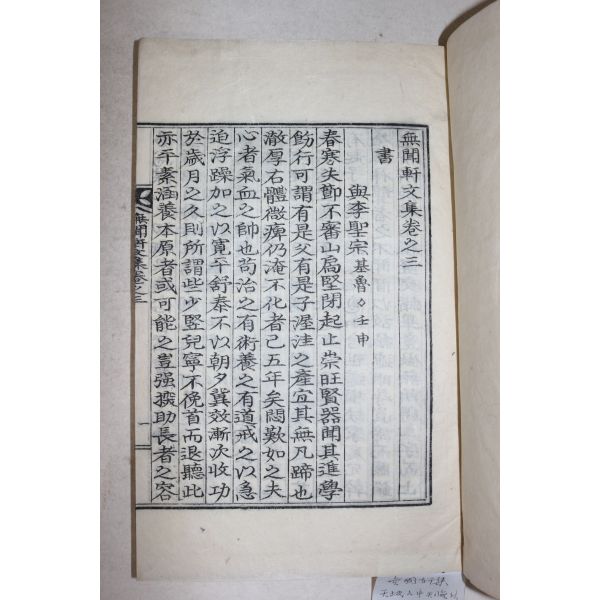 無聞軒文集卷之三
書
與李聖宗基魯〇壬申
春寒失節不審山扃堅閉起止崇旺賢器聞其進學
飭行可謂有是父有是子渥洼之產宜其無凡蹄也
澈厚右體微痺仍淹不化者已五年矣悶歎如之夫
心者氣血之帥也苟治之有術養之有道戒之以急
迫浮躁加之以寬平舒泰不以朝夕冀效漸次收功
於歲月之久則所謂些少竪兒寧不俛首而退聽此
亦平素涵養本原者或可能之豈强撥助長者之容
無聞軒文集卷之三
一